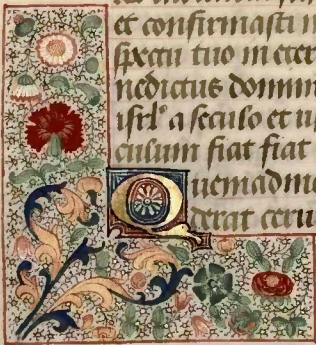 et confirmasti
spectu tuo in eter
nedictus domin
isrl a seculo et u
culum fiat fiat
Quemadmo
derat ceru